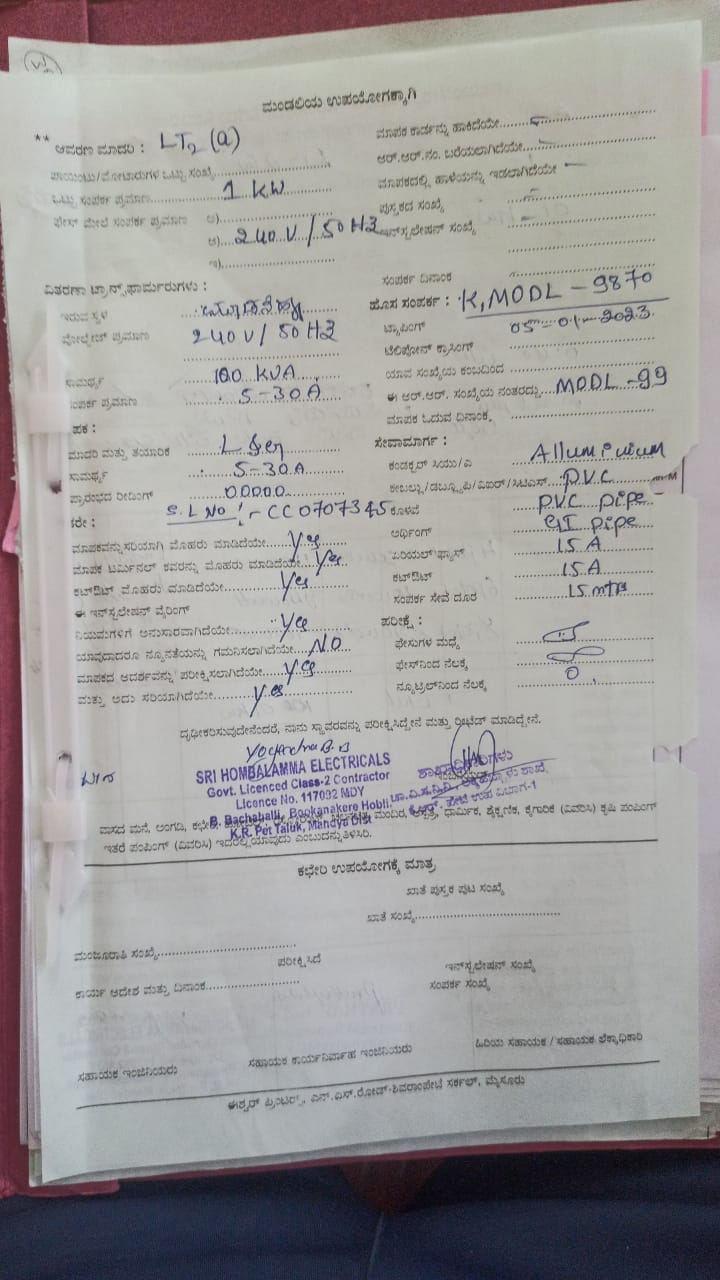 ಮಂಡಲಿಯ ಉಪಯೋಗಕ್ಕಾಗಿ
** ಆವರಣ ಮಾದರಿ : LT2 (a)
ಮಾಪಕ ಕಾರ್ಡನ್ನು ಹಾಕಿದೆಯೇ
ಪಾಯಿಂಟು/ಮೋಟಾರುಗಳ ಒಟ್ಟು ಸಂಖ್ಯೆ
ಆರ್.ಆರ್.ನಂ. ಬರೆಯಲಾಗಿದೆಯೇ
ಒಟ್ಟು ಸಂಪರ್ಕ ಪ್ರಮಾಣ 1 KW
ಮಾಪಕದಲ್ಲಿ ಹಾಳೆಯನ್ನು ಇಡಲಾಗಿದೆಯೇ
ಫೇಸ್ ಮೇಲೆ ಸಂಪರ್ಕ ಪ್ರಮಾಣ ಅ)
ಪುಸ್ತಕದ ಸಂಖ್ಯೆ
ಆ) 240 V / 50 HZ
ಇನ್‌ಸ್ಟಲೇಷನ್ ಸಂಖ್ಯೆ
ಇ)
ವಿತರಣಾ ಟ್ರಾನ್ಸ್‌ಫಾರ್ಮರುಗಳು :
ಸಂಪರ್ಕ ದಿನಾಂಕ
ಇರುವ ಸ್ಥಳ
ಹೊಸ ಸಂಪರ್ಕ : K, MODL - 9870
ವೋಲ್ಟೇಜ್ ಪ್ರಮಾಣ 240 V / 50 HZ
ಟ್ಯಾಪಿಂಗ್ 05-01-2023.
ಟೆಲಿಫೋನ್ ಕ್ರಾಸಿಂಗ್
ಸಾಮರ್ಥ್ಯ 100 KVA
ಯಾವ ಸಂಖ್ಯೆಯ ಕಂಬದಿಂದ
ಸಂಪರ್ಕ ಪ್ರಮಾಣ 5-30A
ಈ ಆರ್.ಆರ್. ಸಂಖ್ಯೆಯ ನಂತರದ್ದು MODL - 99
ಪಕ :
ಮಾಪಕ ಓದುವ ದಿನಾಂಕ
ಮಾದರಿ ಮತ್ತು ತಯಾರಿಕೆ
ಸೇವಾಮಾರ್ಗ :
ಸಾಮರ್ಥ್ಯ 5-30A
ಕಂಡಕ್ಟರ್ ಸಿಯು/ಎ Alluminium
ಪ್ರಾರಂಭದ ರೀಡಿಂಗ್ 00000
ಕೇಬಲ್ಲು/ಡಬ್ಲ್ಯೂಪಿ/ಎಐಆರ್/ಸಿಟಿಎಸ್ PVC
ಕರೇ : S.L NO :- CC0707345
ಕೊಳವೆ PVC pipe
ಮಾಪಕವನ್ನು ಸರಿಯಾಗಿ ಮೊಹರು ಮಾಡಿದೆಯೇ Yes
ಅರ್ಥಿಂಗ್ GI pipe
ಮಾಪಕ ಟರ್ಮಿನಲ್ ಕವರನ್ನು ಮೊಹರು ಮಾಡಿದೆಯೇ Yes
ಏರಿಯಲ್ ಫ್ಯೂಸ್ 15 A
ಕಟ್‌ಔಟ್ ಮೊಹರು ಮಾಡಿದೆಯೇ Yes
ಕಟ್‌ಔಟ್ 15 A
ಈ ಇನ್‌ಸ್ಟಲೇಷನ್ ವೈರಿಂಗ್
ಸಂಪರ್ಕ ಸೇವೆ ದೂರ 15 mtrs
ನಿಯಮಗಳಿಗೆ ಅನುಸಾರವಾಗಿದೆಯೇ Yes
ಪರೀಕ್ಷೆ :
ಯಾವುದಾದರೂ ನ್ಯೂನತೆಯನ್ನು ಗಮನಿಸಲಾಗಿದೆಯೇ NO
ಫೇಸುಗಳ ಮಧ್ಯೆ
ಮಾಪಕದ ಆದರ್ಶವನ್ನು ಪರೀಕ್ಷಿಸಲಾಗಿದೆಯೇ Yes
ಫೇಸ್‌ನಿಂದ ನೆಲಕ್ಕೆ
ಮತ್ತು ಅದು ಸರಿಯಾಗಿದೆಯೇ Yes
ನ್ಯೂಟ್ರಲ್‌ನಿಂದ ನೆಲಕ್ಕೆ 0
ದೃಢೀಕರಿಸುವುದೇನೆಂದರೆ, ನಾನು ಸ್ಥಾವರವನ್ನು ಪರೀಕ್ಷಿಸಿದ್ದೇನೆ ಮತ್ತು ರೀಟೆಡ್ ಮಾಡಿದ್ದೇನೆ.
SRI HOMBALAMMA ELECTRICALS
Govt. Licenced Class-2 Contractor
Licence No. 117002 MDY
B. Bachahalli, Bookanakere Hobli
K.R. Pet Taluk, Mandya Dist
ಶಾಖಾಧಿಕಾರಿಗಳು
ಕೆ.ಆರ್. ಪೇಟೆ ಉಪ ವಿಭಾಗ-1
ವಾಸದ ಮನೆ, ಅಂಗಡಿ, ಮಂದಿರ, ಆಸ್ಪತ್ರೆ, ಧಾರ್ಮಿಕ, ಶೈಕ್ಷಣಿಕ, ಕೈಗಾರಿಕೆ (ವಿವರಿಸಿ) ಕೃಷಿ ಪಂಪಿಂಗ್
ಇತರೆ ಪಂಪಿಂಗ್ (ವಿವರಿಸಿ) ಇದರಲ್ಲಿ ಯಾವುದು ಎಂಬುದನ್ನು ತಿಳಿಸಿರಿ.
ಕಛೇರಿ ಉಪಯೋಗಕ್ಕೆ ಮಾತ್ರ
ಖಾತೆ ಪುಸ್ತಕ ಪುಟ ಸಂಖ್ಯೆ
ಖಾತೆ ಸಂಖ್ಯೆ
ಮಂಜೂರಾತಿ ಸಂಖ್ಯೆ
ಪರೀಕ್ಷಿಸಿದೆ
ಇನ್‌ಸ್ಟಲೇಷನ್ ಸಂಖ್ಯೆ
ಕಾರ್ಯ ಆದೇಶ ಮತ್ತು ದಿನಾಂಕ
ಸಂಪರ್ಕ ಸಂಖ್ಯೆ
ಸಹಾಯಕ ಇಂಜಿನಿಯರು
ಸಹಾಯಕ ಕಾರ್ಯನಿರ್ವಾಹ ಇಂಜಿನಿಯರು
ಹಿರಿಯ ಸಹಾಯಕ / ಸಹಾಯಕ ಲೆಕ್ಕಾಧಿಕಾರಿ
ಈಶ್ವರ್ ಪ್ರಿಂಟರ್ಸ್, ಎನ್.ಎಸ್.ರೋಡ್-ಶಿವರಾಂಪೇಟೆ ಸರ್ಕಲ್, ಮೈಸೂರು